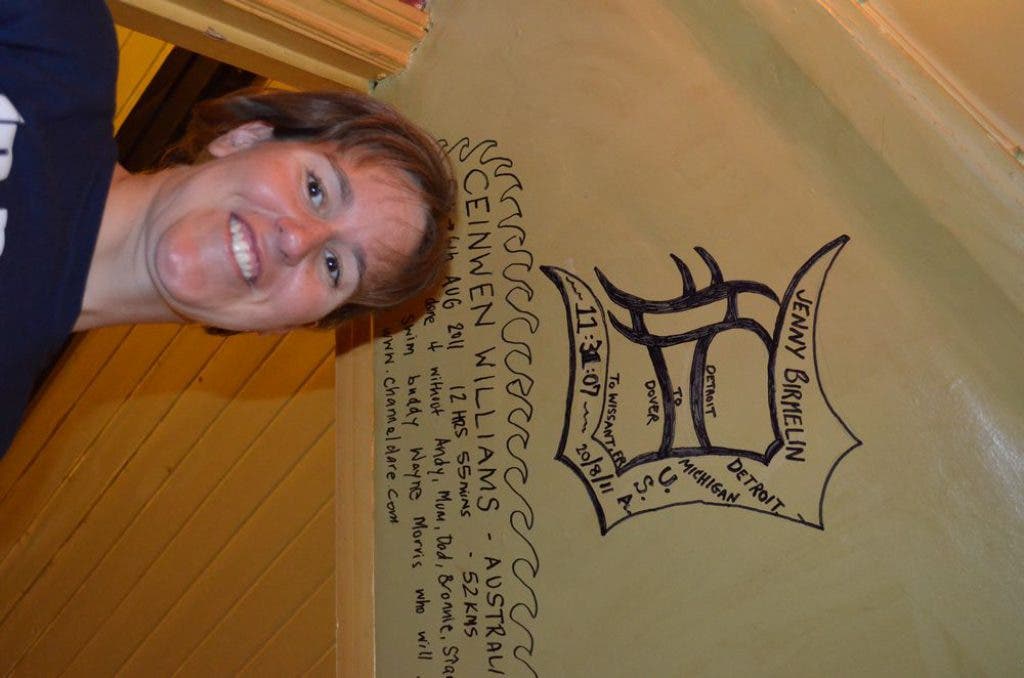 JENNY BIRMELIN
DETROIT
MICHIGAN
U.
S.
A.
DETROIT
TO
DOVER
TO WISSANT, FR
11:31:07
20/8/11
CEINWEN WILLIAMS - AUSTRALI
4th AUG 2011 12 HRS 55 MINS - 52 KMS
done it without Andy, Mum, Dad, Bronnie,
swim buddy Wayne Morris who will
www.channeldare.com